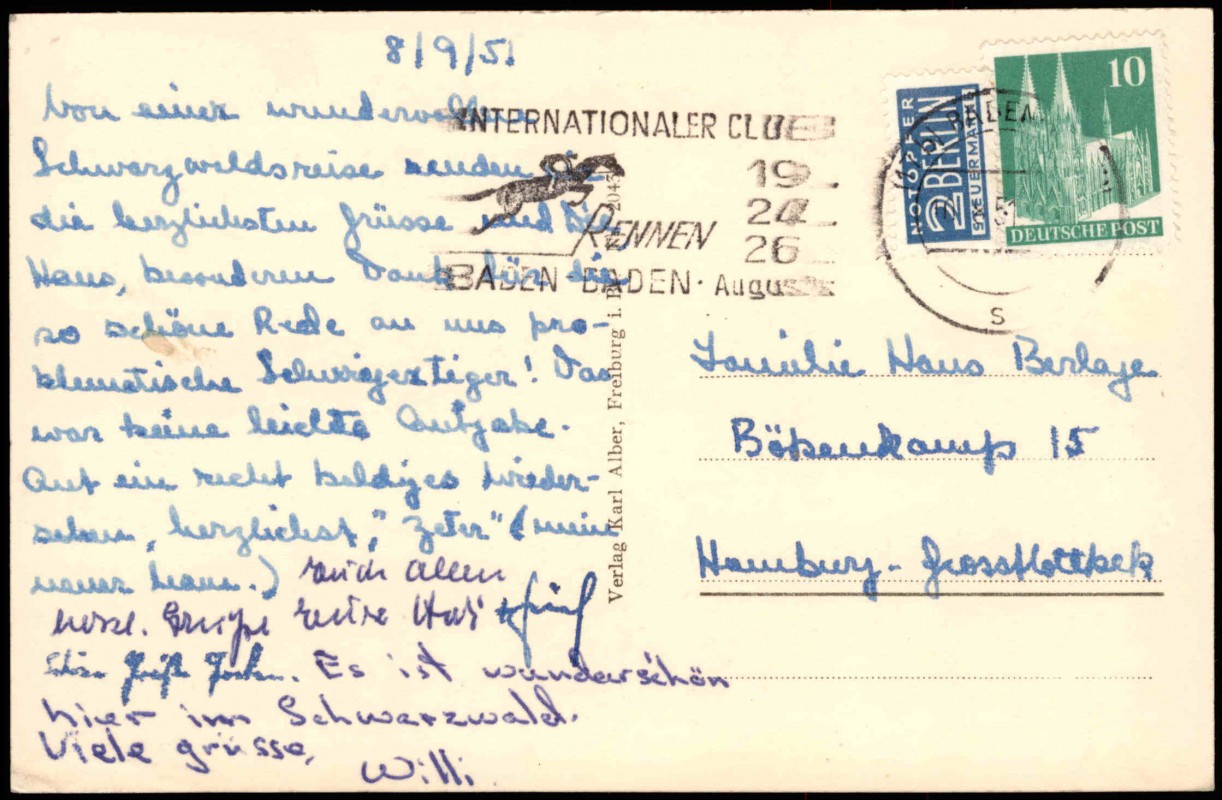 8/9/51
Von einer wundervollen
Schwarzwaldsreise senden wir
die herzlichsten Grüsse und Dir
Haus, besonderen Dank für die
so schöne Rede an uns pro-
blematische Schwiegertiger! Das
war keine leichte Aufgabe.
Auf ein recht baldiges Wieder-
sehen, herzlichst, "Zeter" (mein
neuer Name.) auch allen
herzl. Grüße
Es ist wunderschön
hier im Schwarzwald.
Viele grüsse,
Willi
INTERNATIONALER CLUB
19
24
26
RENNEN
BADEN-BADEN · August
Verlag Karl Alber, Freiburg i. B
2043
NOTOPFER
2 BERLIN
STEUERMARKE
10
DEUTSCHE POST
BADEN
51
s
Familie Hans Berlage
Böbenkamp 15
Hamburg-Grossflottbek